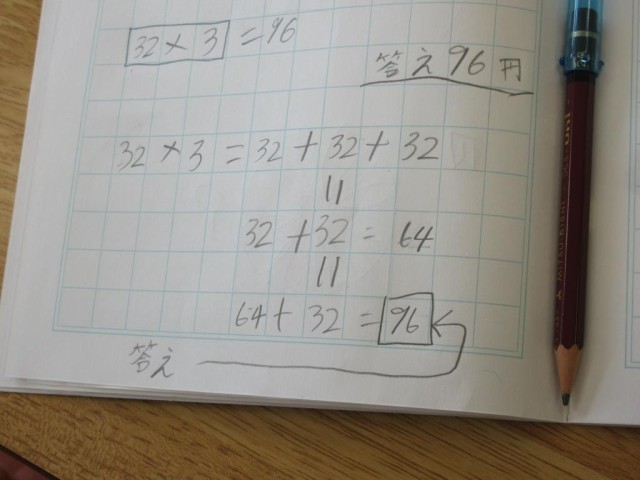 32 × 3 = 96
答え 96 円
32 × 3 = 32 + 32 + 32
||
32 + 32 = 64
||
64 + 32 = 96
答え
uni